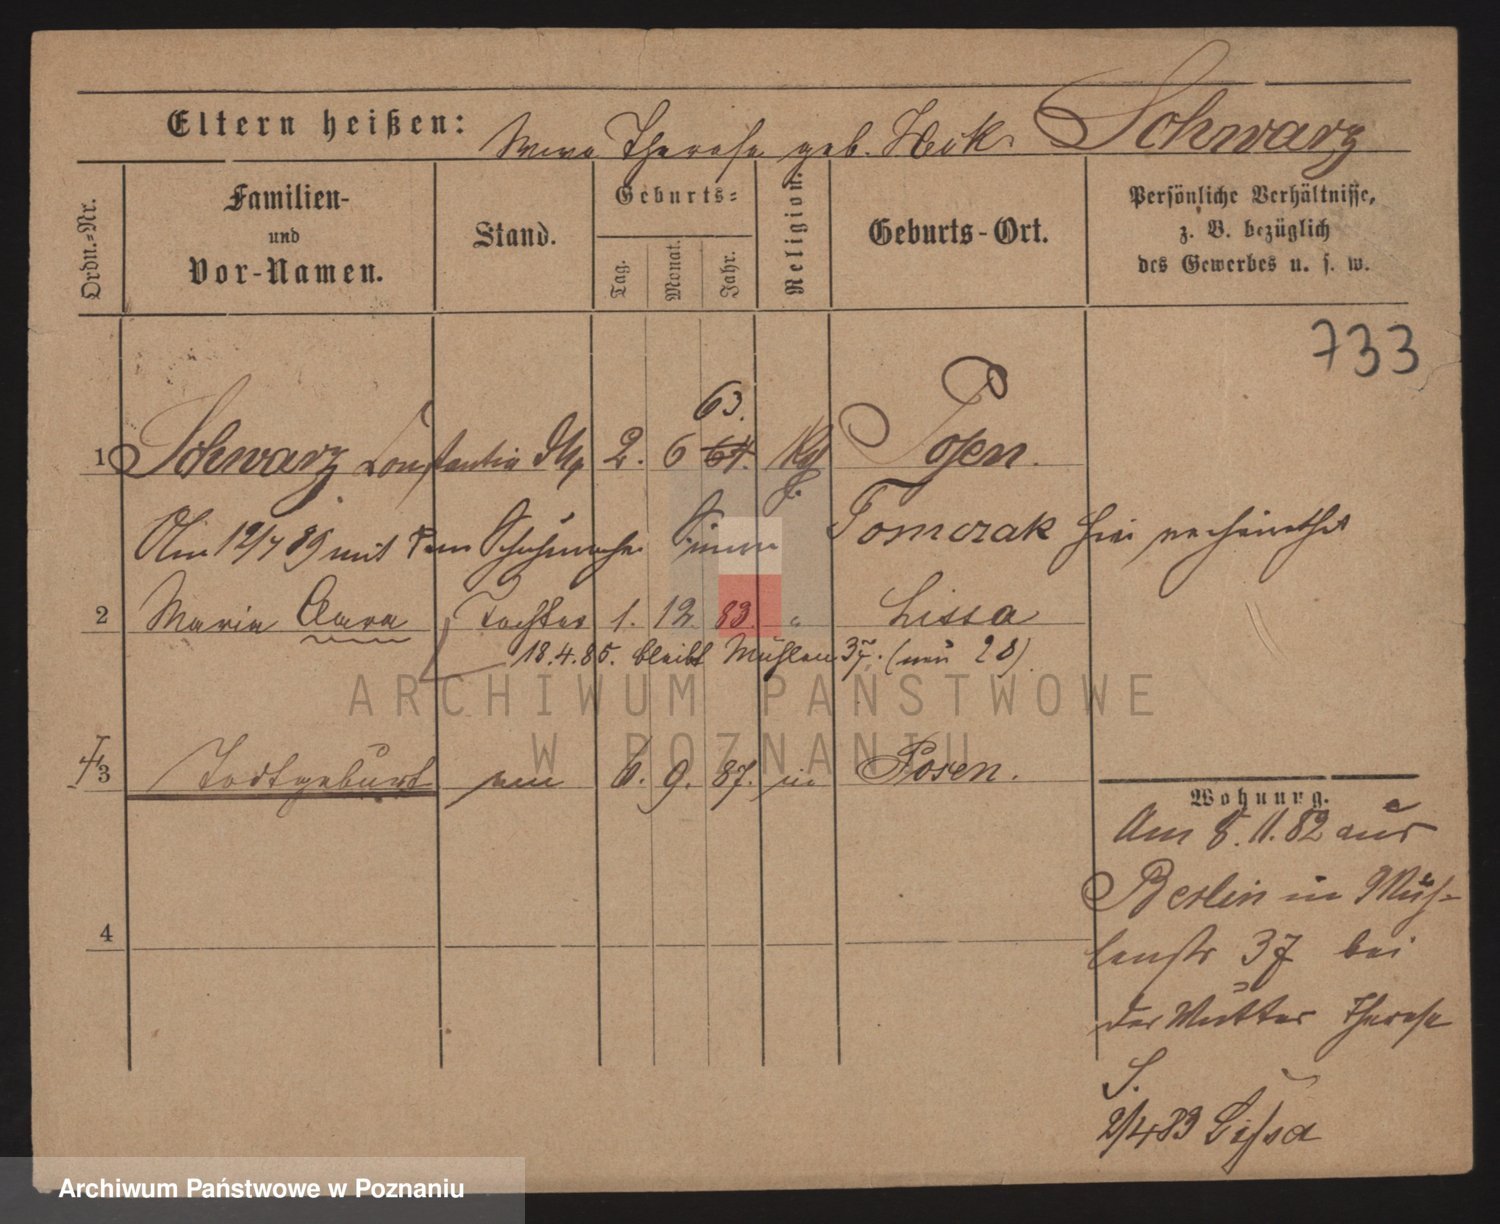 Eltern heißen: Wwe Therese geb. Heck Schwarz
Ordn.-Nr.
Familien-
und
Vor-Namen.
Stand.
Geburts-
Tag.
Monat.
Jahr.
Religion.
Geburts-Ort.
Persönliche Verhältnisse,
z. B. bezüglich
des Gewerbes u. s. w.
733
63.
1 Schwarz Constantia 2. 6 64. Posen.
Am 12/7 89 mit dem Schuhmacher Simon Tomczak hier verheirathet
2 Maria Clara Tochter 1. 12 83. " Lissa
18.4.85. bleibt Mühlen 37. (neu 28)
3 Todtgeburt am 6. 9. 87. in Posen.
4
Wohnung.
Am 8. 11. 82 aus
Berlin in Müh-
lenstr 37 bei
der Mutter Therese
S.
2/4 83 Lissa
ARCHIWUM PAŃSTWOWE
W POZNANIU
Archiwum Państwowe w Poznaniu